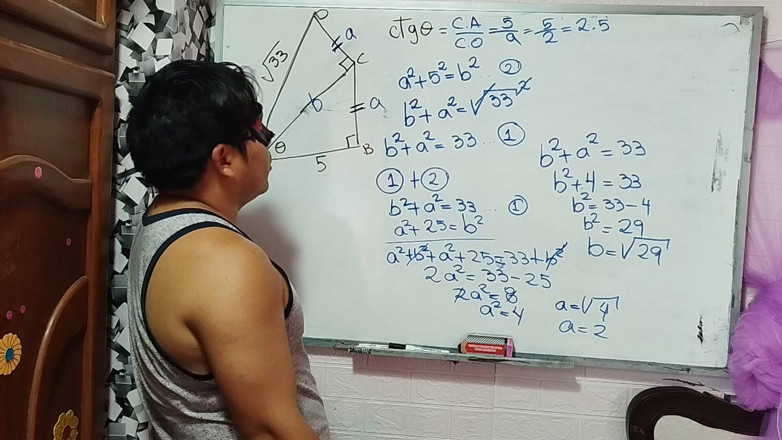 D
√33
a
C
b
a
θ
5
B
ctgθ = CA/CO = 5/a = 5/2 = 2.5
a²+5²=b² ... ②
b²+a²=√33²
b²+a²=33 ... ①
①+②
b²+a²=33 ... ①
a²+25=b²
a²+b²+a²+25=33+b²
2a²=33-25
2a²=8
a²=4
a=√4
a=2
b²+a²=33
b²+4=33
b²=33-4
b²=29
b=√29